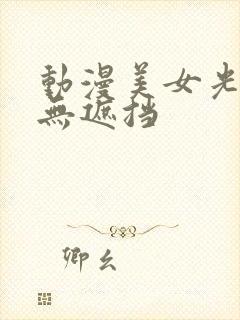 動漫美女光
無遮挡
卿幺